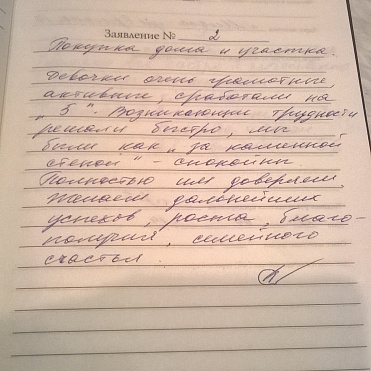 Заявление № 2
Покупка дома и участка.
Девочки очень грамотные,
активные, сработали на
„5“. Возникающии трудности
решали быстро, мы
были как „за каменной
стеной“ - спокойны.
Полностью им доверяем.
Желаем дальнейших
успехов, роста, благо-
получия, семейного
счастья